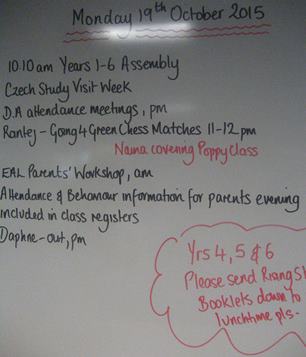 Monday 19th October 2015
10.10am Years 1-6 Assembly
Czech Study Visit Week
D.A attendance meetings, pm
Going 4 Green Chess Matches 11-12pm
Naima covering Poppy Class
EAL Parents' Workshop, am
Attendance & Behaviour information for parents evening
included in class registers
Daphne - out, pm
Yrs 4, 5 & 6
Please send Rising S
Booklets down to
lunchtime pls.